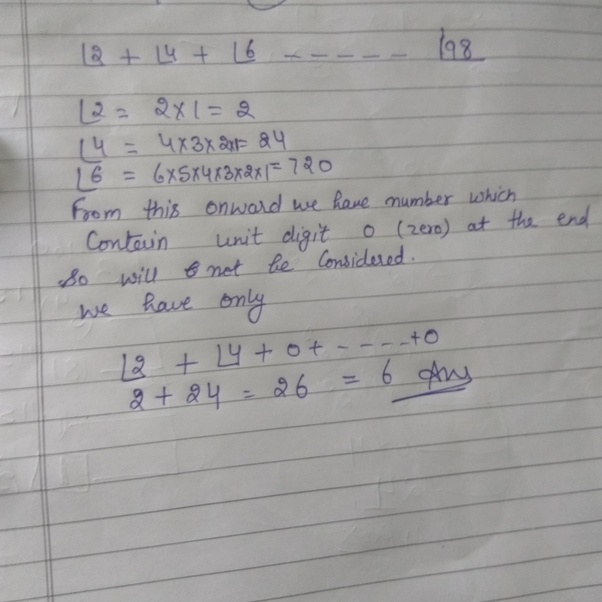 ⌊2 + ⌊4 + ⌊6 ----- ⌊98
⌊2 = 2×1 = 2
⌊4 = 4×3×2×1= 24
⌊6 = 6×5×4×3×2×1=720
From this onward we have number which
Contain unit digit 0 (zero) at the end
So will not be Considered.
we have only
⌊2 + ⌊4 + 0+ -----+0
2 + 24 = 26 = 6 Ans